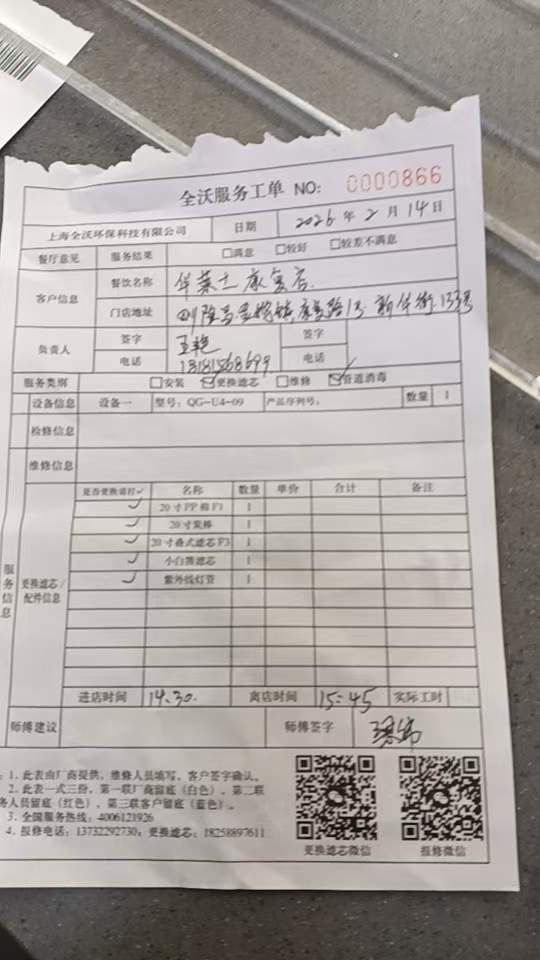 全沃服务工单 NO: 0000866
上海全沃环保科技有限公司 日期 2026年2月14日
餐厅意见 服务结果 □满意 □较好 □较差不满意
客户信息 餐饮名称 华莱士康复店
门店地址 路1号新华街133号
负责人 签字 签字
电话 电话
服务类别 □安装 ☑更换滤芯 □维修 ☑管道消毒
设备信息 设备一 型号: QG-U4-09 产品序列号: 数量 1
检修信息
维修信息
是否更换请打✓ 名称 数量 单价 合计 备注
✓ 20寸PP棉F1 1
✓ 20寸炭棒 1
✓ 20寸叠式滤芯F3 1
✓ 小白菌滤芯 1
✓ 紫外线灯管 1
服务信息
更换滤芯/配件信息
进店时间 14:30. 离店时间 15:45 实际工时
师傅建议 师傅签字
: 1. 此表由厂商提供,维修人员填写,客户签字确认。
2. 此表一式三份,第一联厂商留底(白色),第二联
务人员留底(红色),第三联客户留底(蓝色)。
3. 全国服务热线: 4006121926
4. 报修电话: 13732292730, 更换滤芯: 18258897611
更换滤芯微信 报修微信